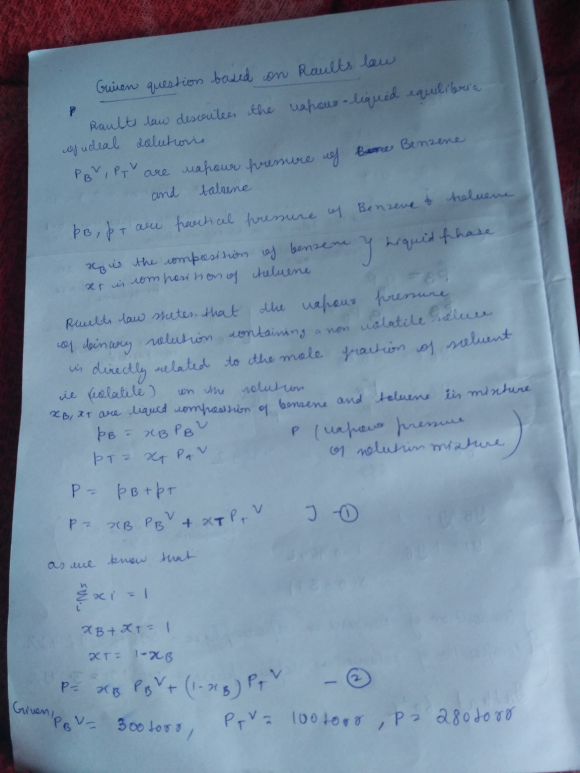 Given question based on Raults law
P
Raults law describes the vapour-liquid equilibric
of ideal solutions
P_B^V, P_T^V are vapour pressure of Benzene
and toluene
p_B, p_T are partial pressure of Benzene & toluene
x_B is the composition of benzene } liquid phase
x_T is composition of toluene
Raults law states that the vapour pressure
of binary solution containing a non volatile solute
is directly related to the mole fraction of solvent
ie (volatile) in the solution
x_B, x_T are liquid composition of benzene and toluene in mixture
p_B = x_B P_B^V P (vapour pressure
p_T = x_T P_T^V of solution mixture)
P = p_B + p_T
P = x_B P_B^V + x_T P_T^V ] - ①
as we know that
n
Σ x_i = 1
i
x_B + x_T = 1
x_T = 1 - x_B
P = x_B P_B^V + (1 - x_B) P_T^V - ②
Given, P_B^V = 300 torr, P_T^V = 100 torr, P = 280 torr